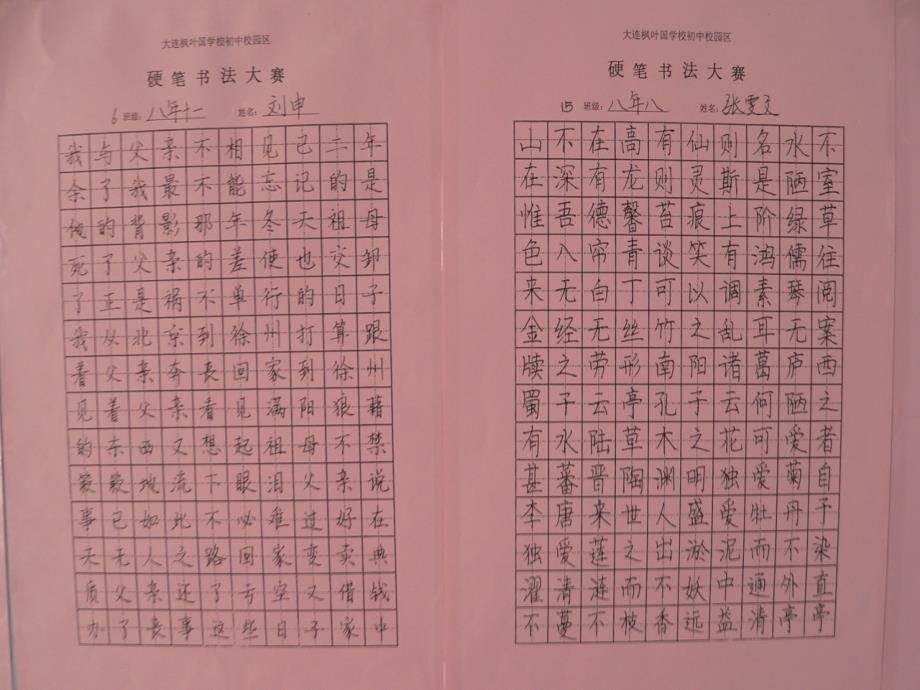 大连枫叶国学校初中校园区
硬笔书法大赛
6 班级：八年十一 姓名：刘申
我与父亲不相见已二年
余了我最不能忘记的是
他的背影那年冬天祖母
死了父亲的差使也交卸
了正是祸不单行的日子
我从北京到徐州打算跟
着父亲奔丧回家到徐州
见着父亲看见满阳狼藉
的东西又想起祖母不禁
簌簌地流下眼泪父亲说
事已如此不必难过好在
天无人之路回家变卖典
质父亲还了亏空又借钱
办了丧事这些日子家中
大连枫叶国学校初中校园区
硬笔书法大赛
15 班级：八年八 姓名：张雯文
山不在高有仙则名水不
在深有龙则灵斯是陋室
惟吾德馨苔痕上阶绿草
色入帘青谈笑有鸿儒往
来无白丁可以调素琴阅
金经无丝竹之乱耳无案
牍之劳形南阳诸葛庐西
蜀子云亭孔子云何陋之
有水陆草木之花可爱者
甚蕃晋陶渊明独爱菊自
李唐来世人盛爱牡丹予
独爱莲之出淤泥而不染
濯清涟而不妖中通外直
不蔓不枝香远益清亭亭